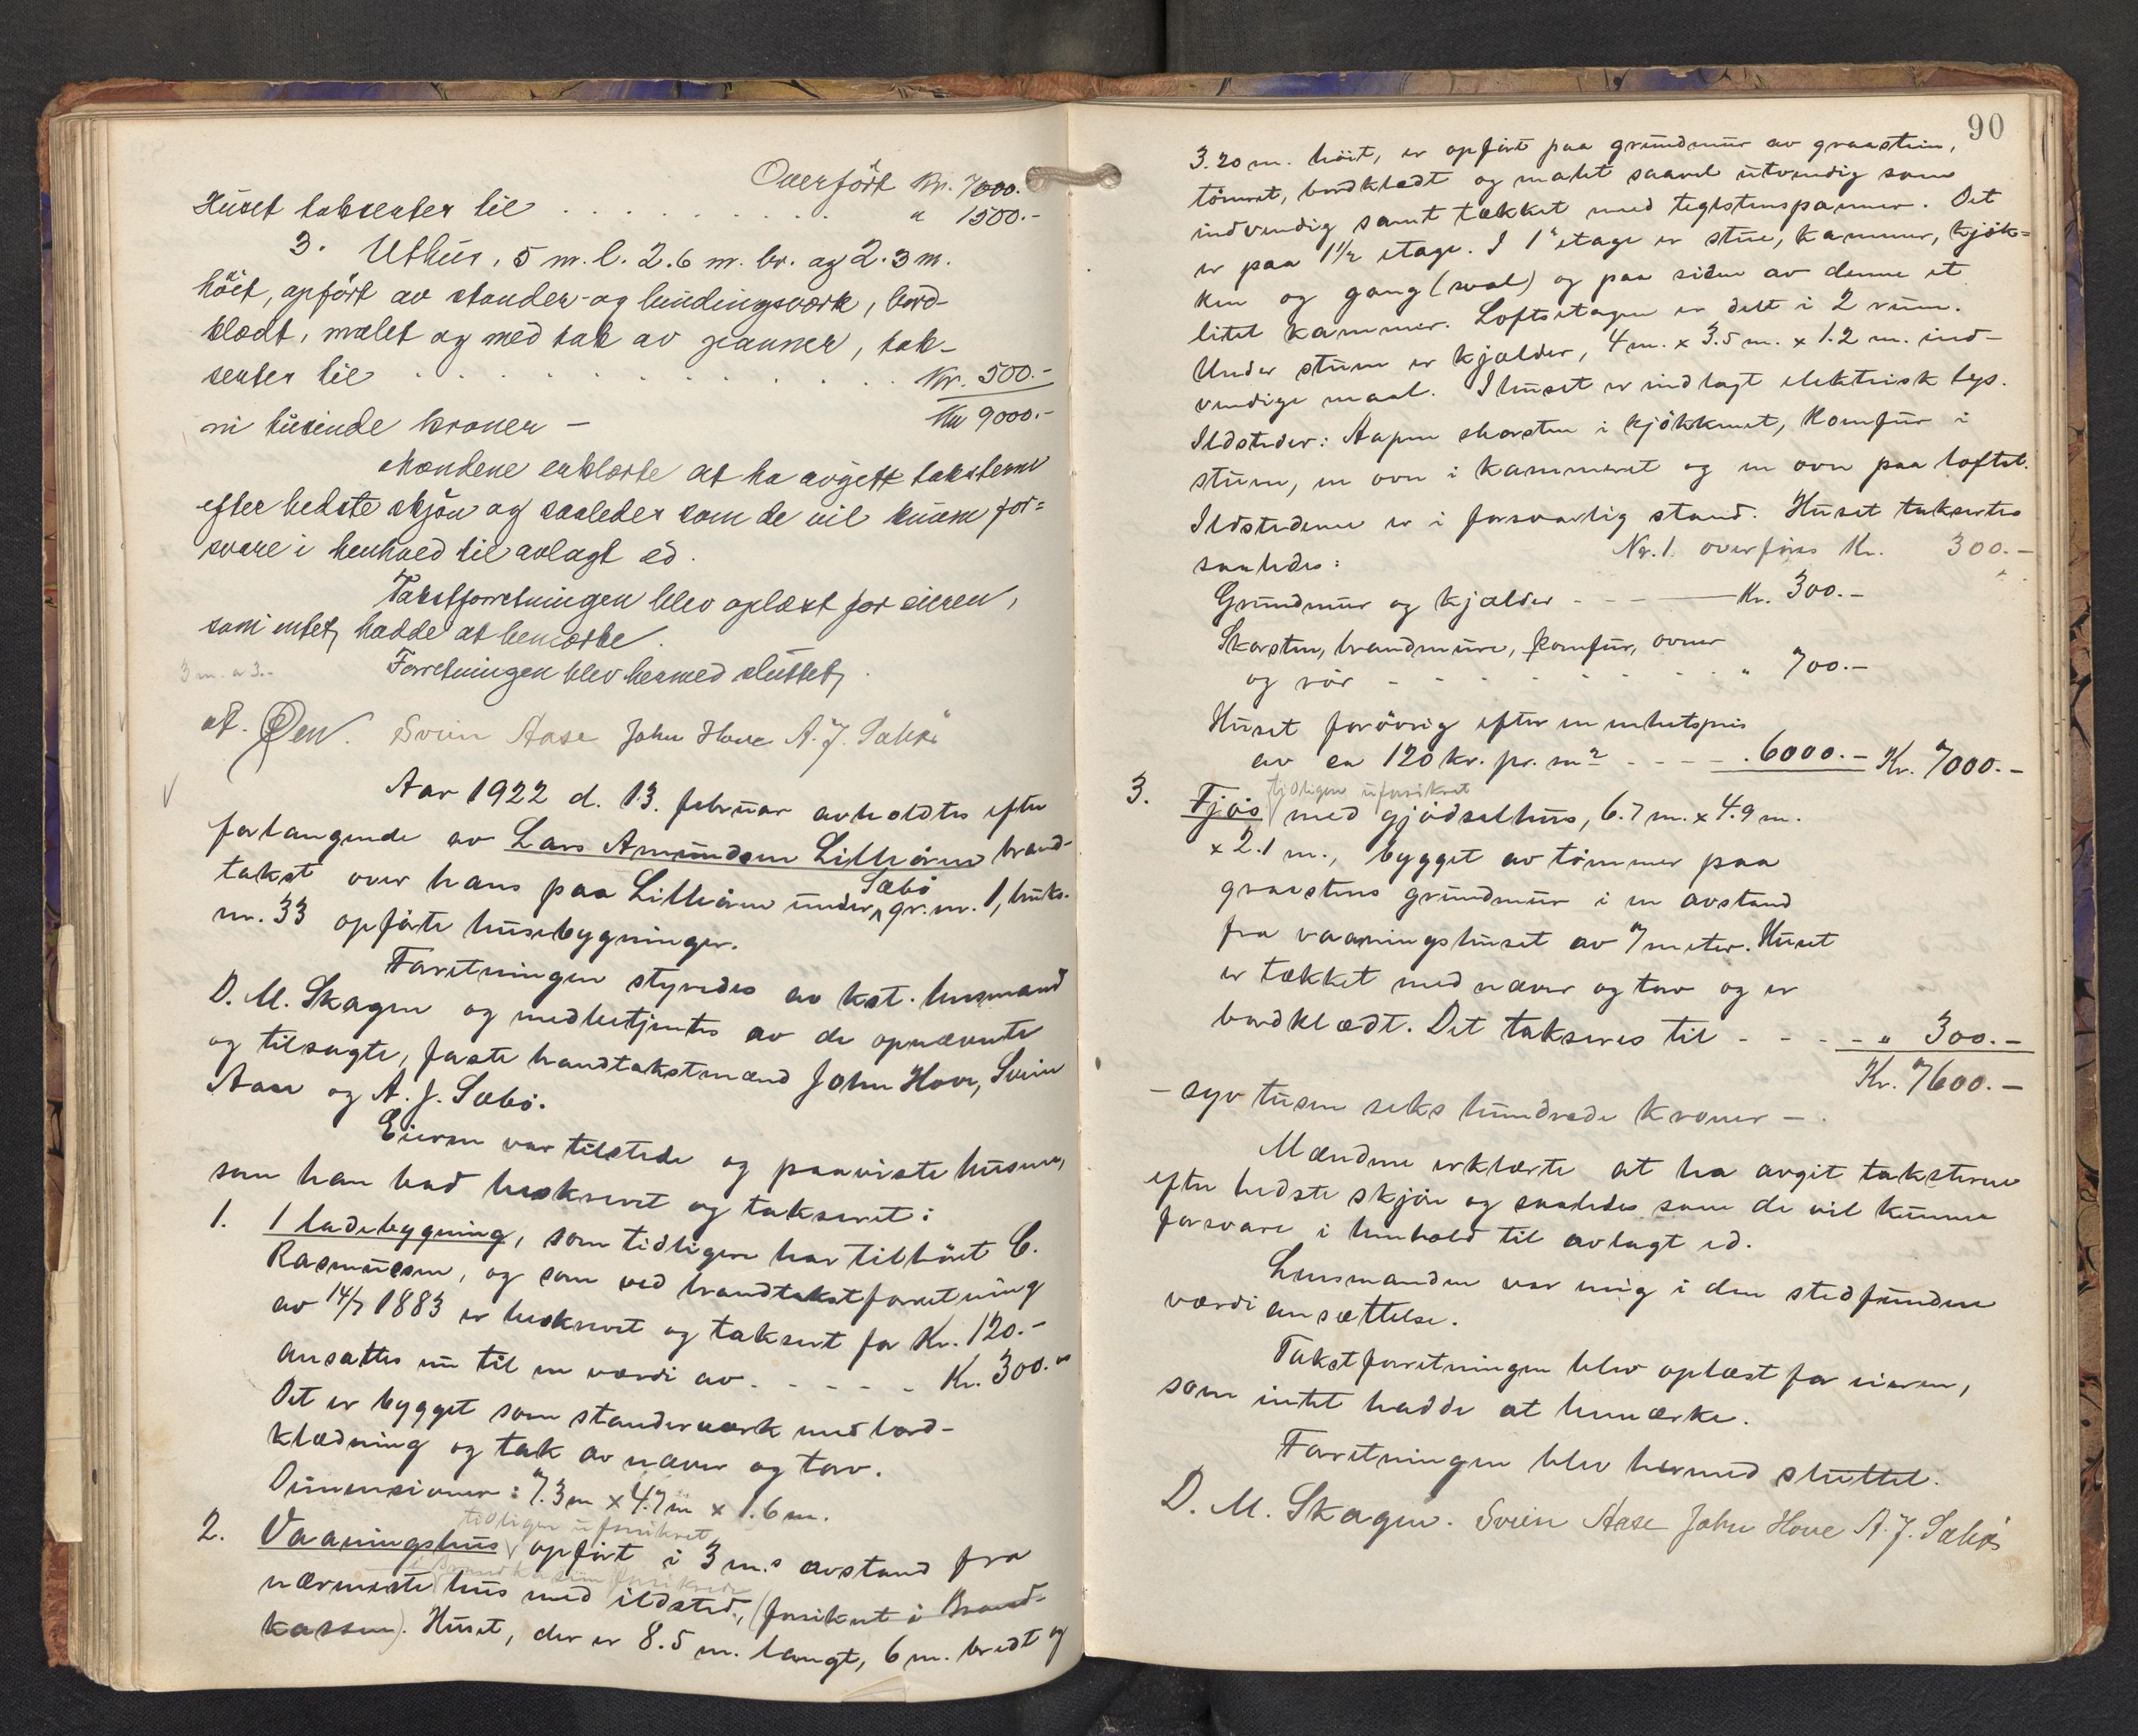 Overført Kr. 7000.-
Huset takseres til . . . . . . . . . . " 1500.-
3. Uthus, 5 m. l. 2.6 m. br. og 2.3 m.
höit, opfört av stender- og bindingsverk, bord-
klædt, malet og med tak av panner, tak-
seres til . . . . . . . . . . . . . . Kr. 500.-
Kr 9000.-
ni tusinde kroner -
Mændene erklærte at ha avgitt taksterne
efter bedste skjön og saaledes som de vil kunne for=
svare i henhold til avlagt ed.
Takstforretningen blev oplæst for eieren,
som intet hadde at bemærke.
3 m. a 3.-
Forretningen blev hermed sluttet.
Svein Aase John Hove A. J. Sæbö
Aar 1922 d. 13. februar avholdtes efter
forlangende av Lars Amundsen Lilleören brand-
takst over hans paa Lilleören under Sæbö gr. nr. 1, bruks-
nr. 33 opförte husebygninger.
Forretningen styredes av kst. lensmand
D. M. Skagen og medbetjentes av de opnævnte
og tilsagte, faste brandtakstmænd John Hove, Svein
Aase og A. J. Sæbö.
Eieren var tilstede og paaviste husene,
som han bad beskrevet og taksert:
1. 1 ladebygning, som tidligere har tilhört C.
Rasmussen, og som ved brandtakstforretning
av 14/7 1883 er beskrevet og taksert for Kr. 120.-
ansattes nu til en værdi av . - - - - Kr. 300.-
Det er bygget som stenderverk med bord-
klædning og tak av næver og torv.
Dimensioner: 7.3 m x 4.7 m x 1.6 m.
tidligere uforsikret
2. Vaaningshus opfört i 3 m.s avstand fra
i Brandkassen forsikrede
nærmeste hus med ildsted, (forsikret i Brand-
kassen). Huset, der er 8.5 m. langt, 6 m. bredt og
90
3.20 m. höit, er opfört paa grundmur av graasten,
tömret, bordklædt og malet saavel utvendig som
indvendig samt tækket med teglstenspanner. Det
er paa 1 1/2 etage. I 1ste etage er stue, kammer, kjök=
ken og gang (sval) og paa siden av denne et
litet kammer. Loftsetagen er delt i 2 rum.
Under stuen er kjælder, 4 m. x 3.5 m. x 1.2 m. ind-
vendige maal. I huset er indlagt elektrisk lys.
Ildsteder: Aapen skorsten i kjökkenet, komfur i
stuen, en ovn i kammeret og en ovn paa loftet.
Ildstederne er i forsvarlig stand. Huset taksertes
saaledes: Nr. 1. overföres Kr. 300.-
Grundmur og kjælder - - - Kr. 300.-
Skorsten, brandmure, komfur, ovner
og rör - - - - - - - - " 700.-
Huset forövrig efter en enhetspris
av ca 120 kr. pr. m2 - - - - . 6000.- Kr. 7000.-
tidligere uforsikret
3. Fjös med gjödselhus, 6.7 m. x 4.9 m.
x 2.1 m., bygget av tömmer paa
graastens grundmur i en avstand
fra vaaningshuset av 7 meter. Huset
er tækket med næver og torv og er
bordklædt. Det takseres til - - - - " 300.-
Kr. 7600.-
- syv tusen seks hundrede kroner -.
Mændene erklærte at ha avgit taksterne
efter bedste skjön og saaledes som de vil kunne
forsvare i henhold til avlagt ed.
Lensmanden var enig i den stedfundne
værdiansættelse.
Takstforretningen blev oplæst for eieren,
som intet hadde at bemærke.
Forretningen blev hermed sluttet.
D. M. Skagen. Svein Aase John Hove A. J. Sæbö